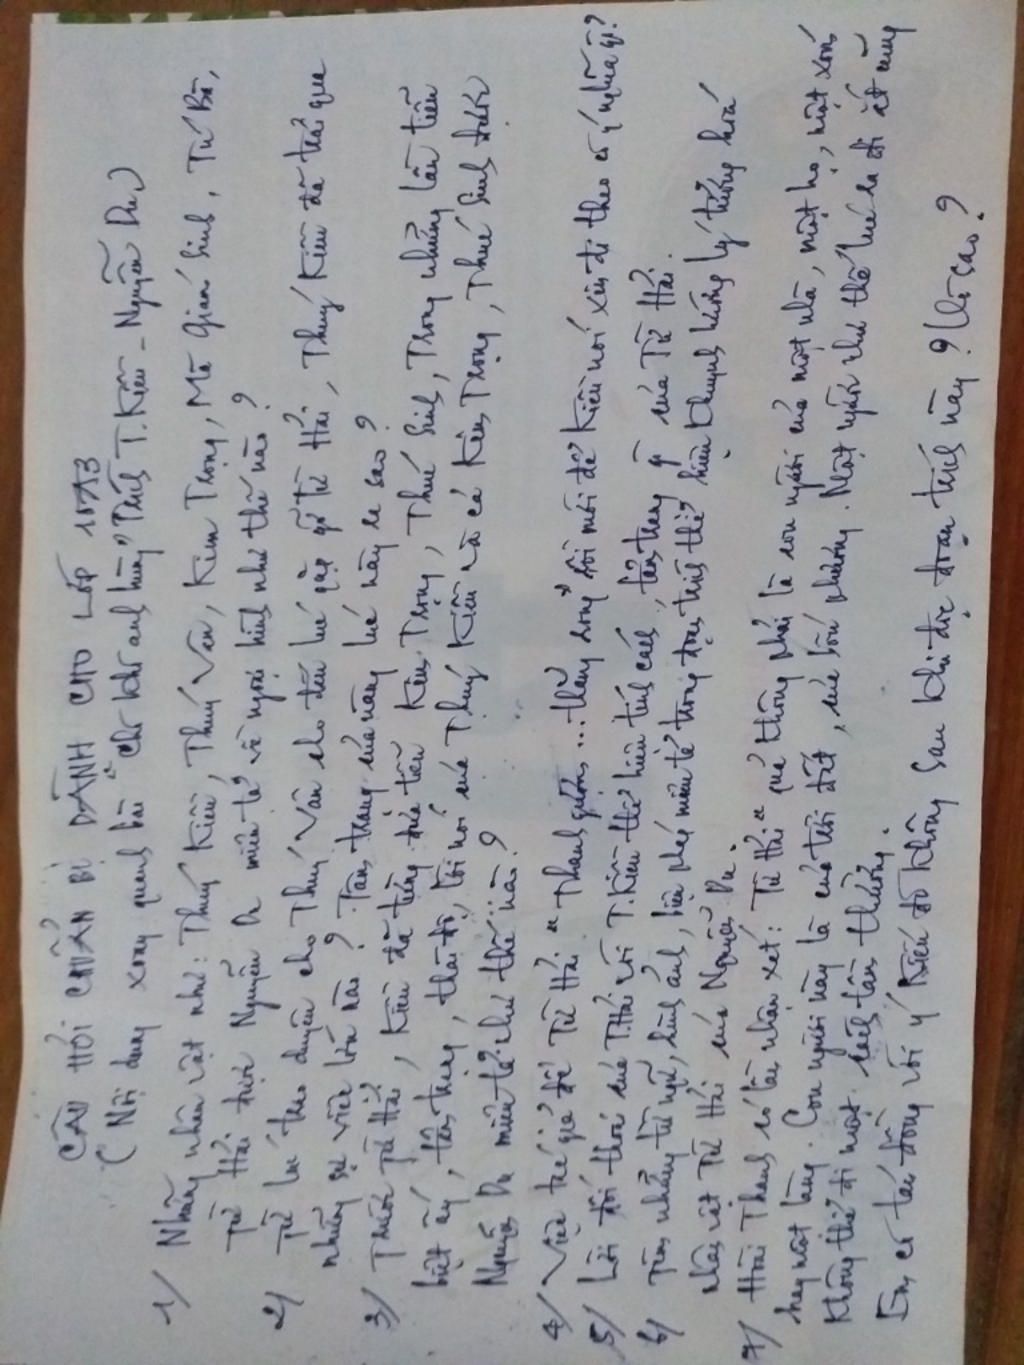 CÂU HỎI CHUẨN BỊ DÀNH CHO LỚP 10A3
( Nội dung xoay quanh bài " Chí khí anh hùng" Trích T.Kiều - Nguyễn Du )
1/ Những nhân vật như: Thuý Kiều, Thuý Vân, Kim Trọng, Mã Giám Sinh, Tú Bà,
Từ Hải được Nguyễn Du miêu tả về ngoại hình như thế nào?
2/ Từ lúc trao duyên cho Thuý Vân cho đến lúc gặp gỡ Từ Hải, Thuý Kiều đã trải qua
những sự việc lớn nào? Tâm trạng của nàng lúc này ra sao?
3/ Trước Từ Hải, Kiều đã từng đưa tiễn Kim Trọng, Thúc Sinh, Trong những lần tiễn
biệt ấy, tâm trạng, thái độ, lời nói của Thuý Kiều và cả Kim Trọng, Thúc Sinh được
Nguyễn Du miêu tả như thế nào?
4/ Việc tác giả để Từ Hải " Thanh gươm ... thẳng rong" rồi mới để Kiều nói xin đi theo có ý nghĩa gì?
5/ Lời đối thoại của T.Hải với T.Kiều thể hiện tính cách, tâm trạng gì của Từ Hải.
6/ Tìm những từ ngữ, hình ảnh, biện pháp miêu tả trong đoạn trích thể hiện khuynh hướng lý tưởng hoá
nhân vật Từ Hải của Nguyễn Du.
7/ Hoài Thanh có lần nhận xét: Từ Hải " quả không phải là con người của một nhà, một họ, một xóm
hay một làng. Con người này là của trời đất, của bốn phương. Một người như thế lúc ra đi ắt cũng
không thể đi một cách tầm thường.
Em có tán đồng với ý kiến đó không sau khi đọc đoạn trích này? Vì sao?